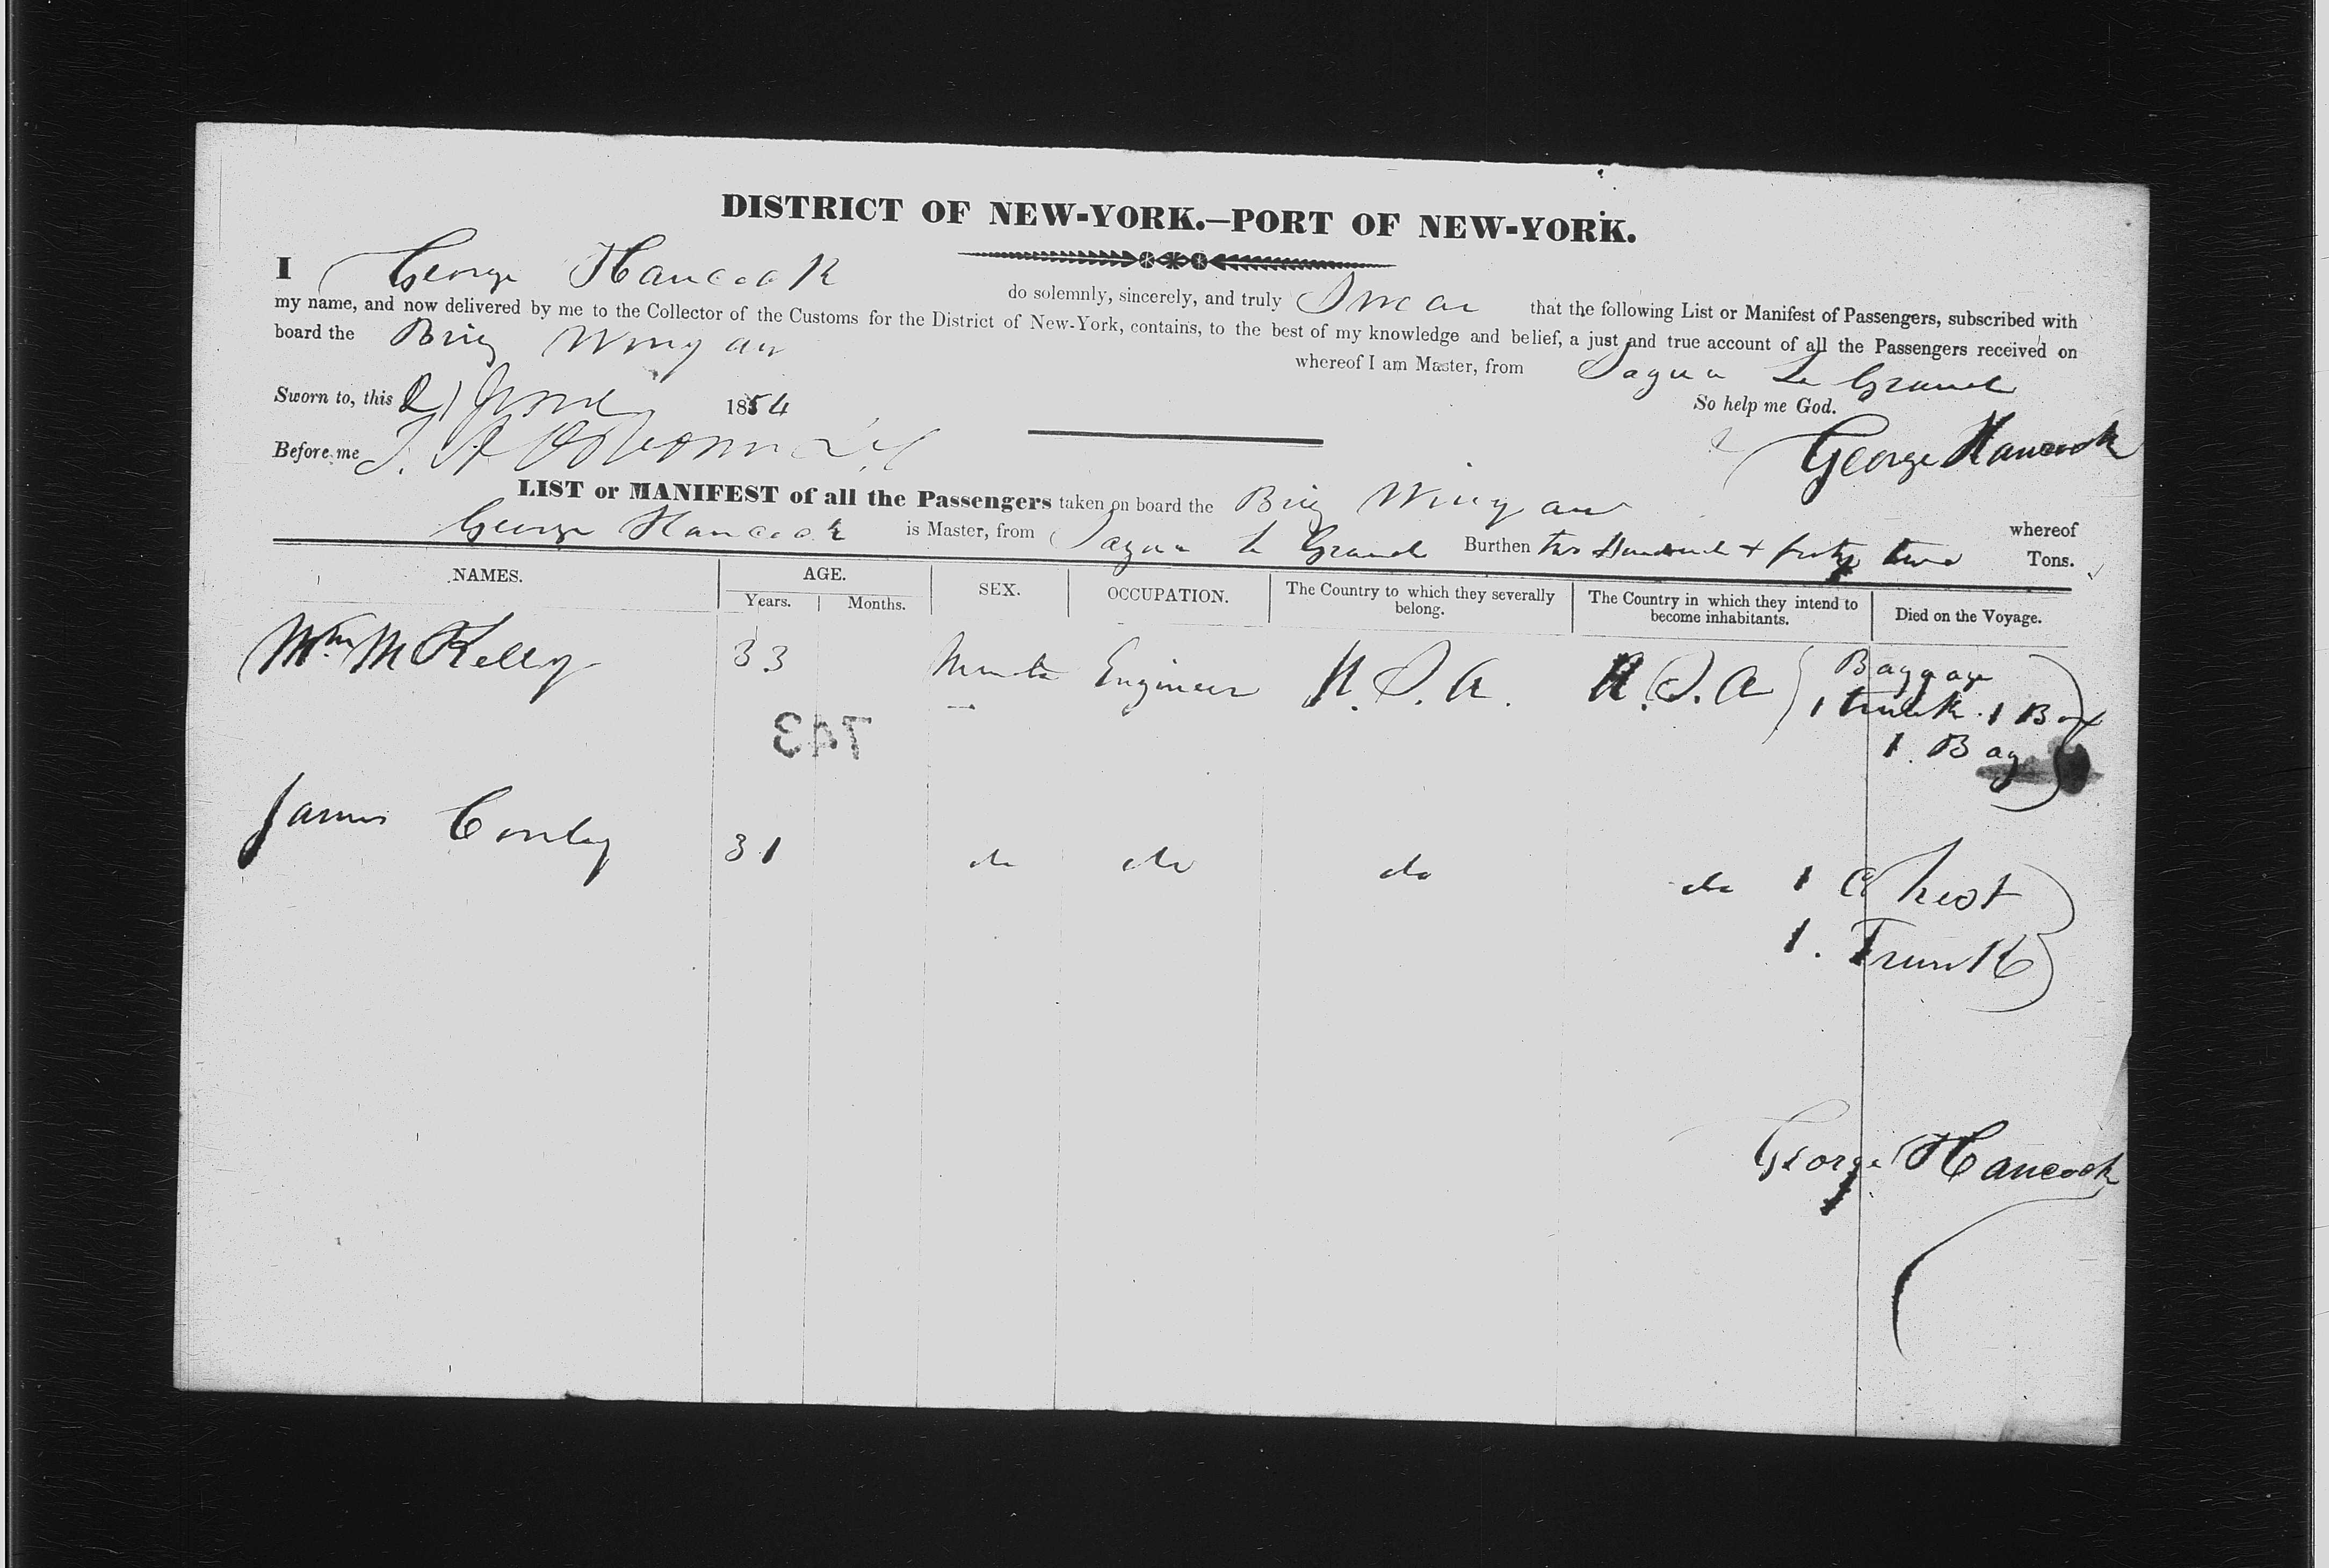 DISTRICT OF NEW-YORK.—PORT OF NEW-YORK.
I George Hancock do solemnly, sincerely, and truly Swear that the following List or Manifest of Passengers, subscribed with
my name, and now delivered by me to the Collector of the Customs for the District of New-York, contains, to the best of my knowledge and belief, a just and true account of all the Passengers received on
board the Brig Wingan whereof I am Master, from Sagua Le Grand
Sworn to, this 21 June 1854 So help me God.
Before me George Hancock
LIST or MANIFEST of all the Passengers taken on board the Brig Wingan whereof
George Hancock is Master, from Sagua Le Grand Burthen two Hundred + forty two Tons.
NAMES. AGE. SEX. OCCUPATION. The Country to which they severally belong. The Country in which they intend to become inhabitants. Died on the Voyage.
Years. Months.
Wm McKelly 33 Male Engineer U.S.A. U.S.A Baggage
1 trunk. 1 Box
1. Bag
James Conley 31 do do do do 1 Chest
1. Trunk
George Hancock